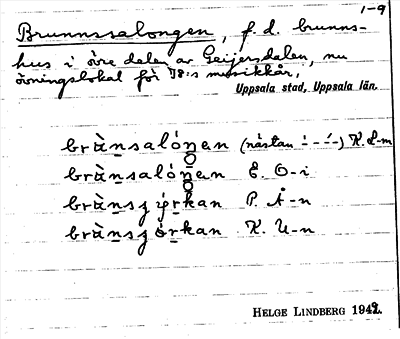 1-9
Brunnssalongen, f.d. brunns-
hus i övre delen av Geijersdalen, nu
övningslokal för I8:s musikkår,
Uppsala stad, Uppsala län.
brànsalóŋen (nästan K. L-m
brànsalóŋen E. O-i
P. Å-n
K. U-n
HELGE LINDBERG 1942.